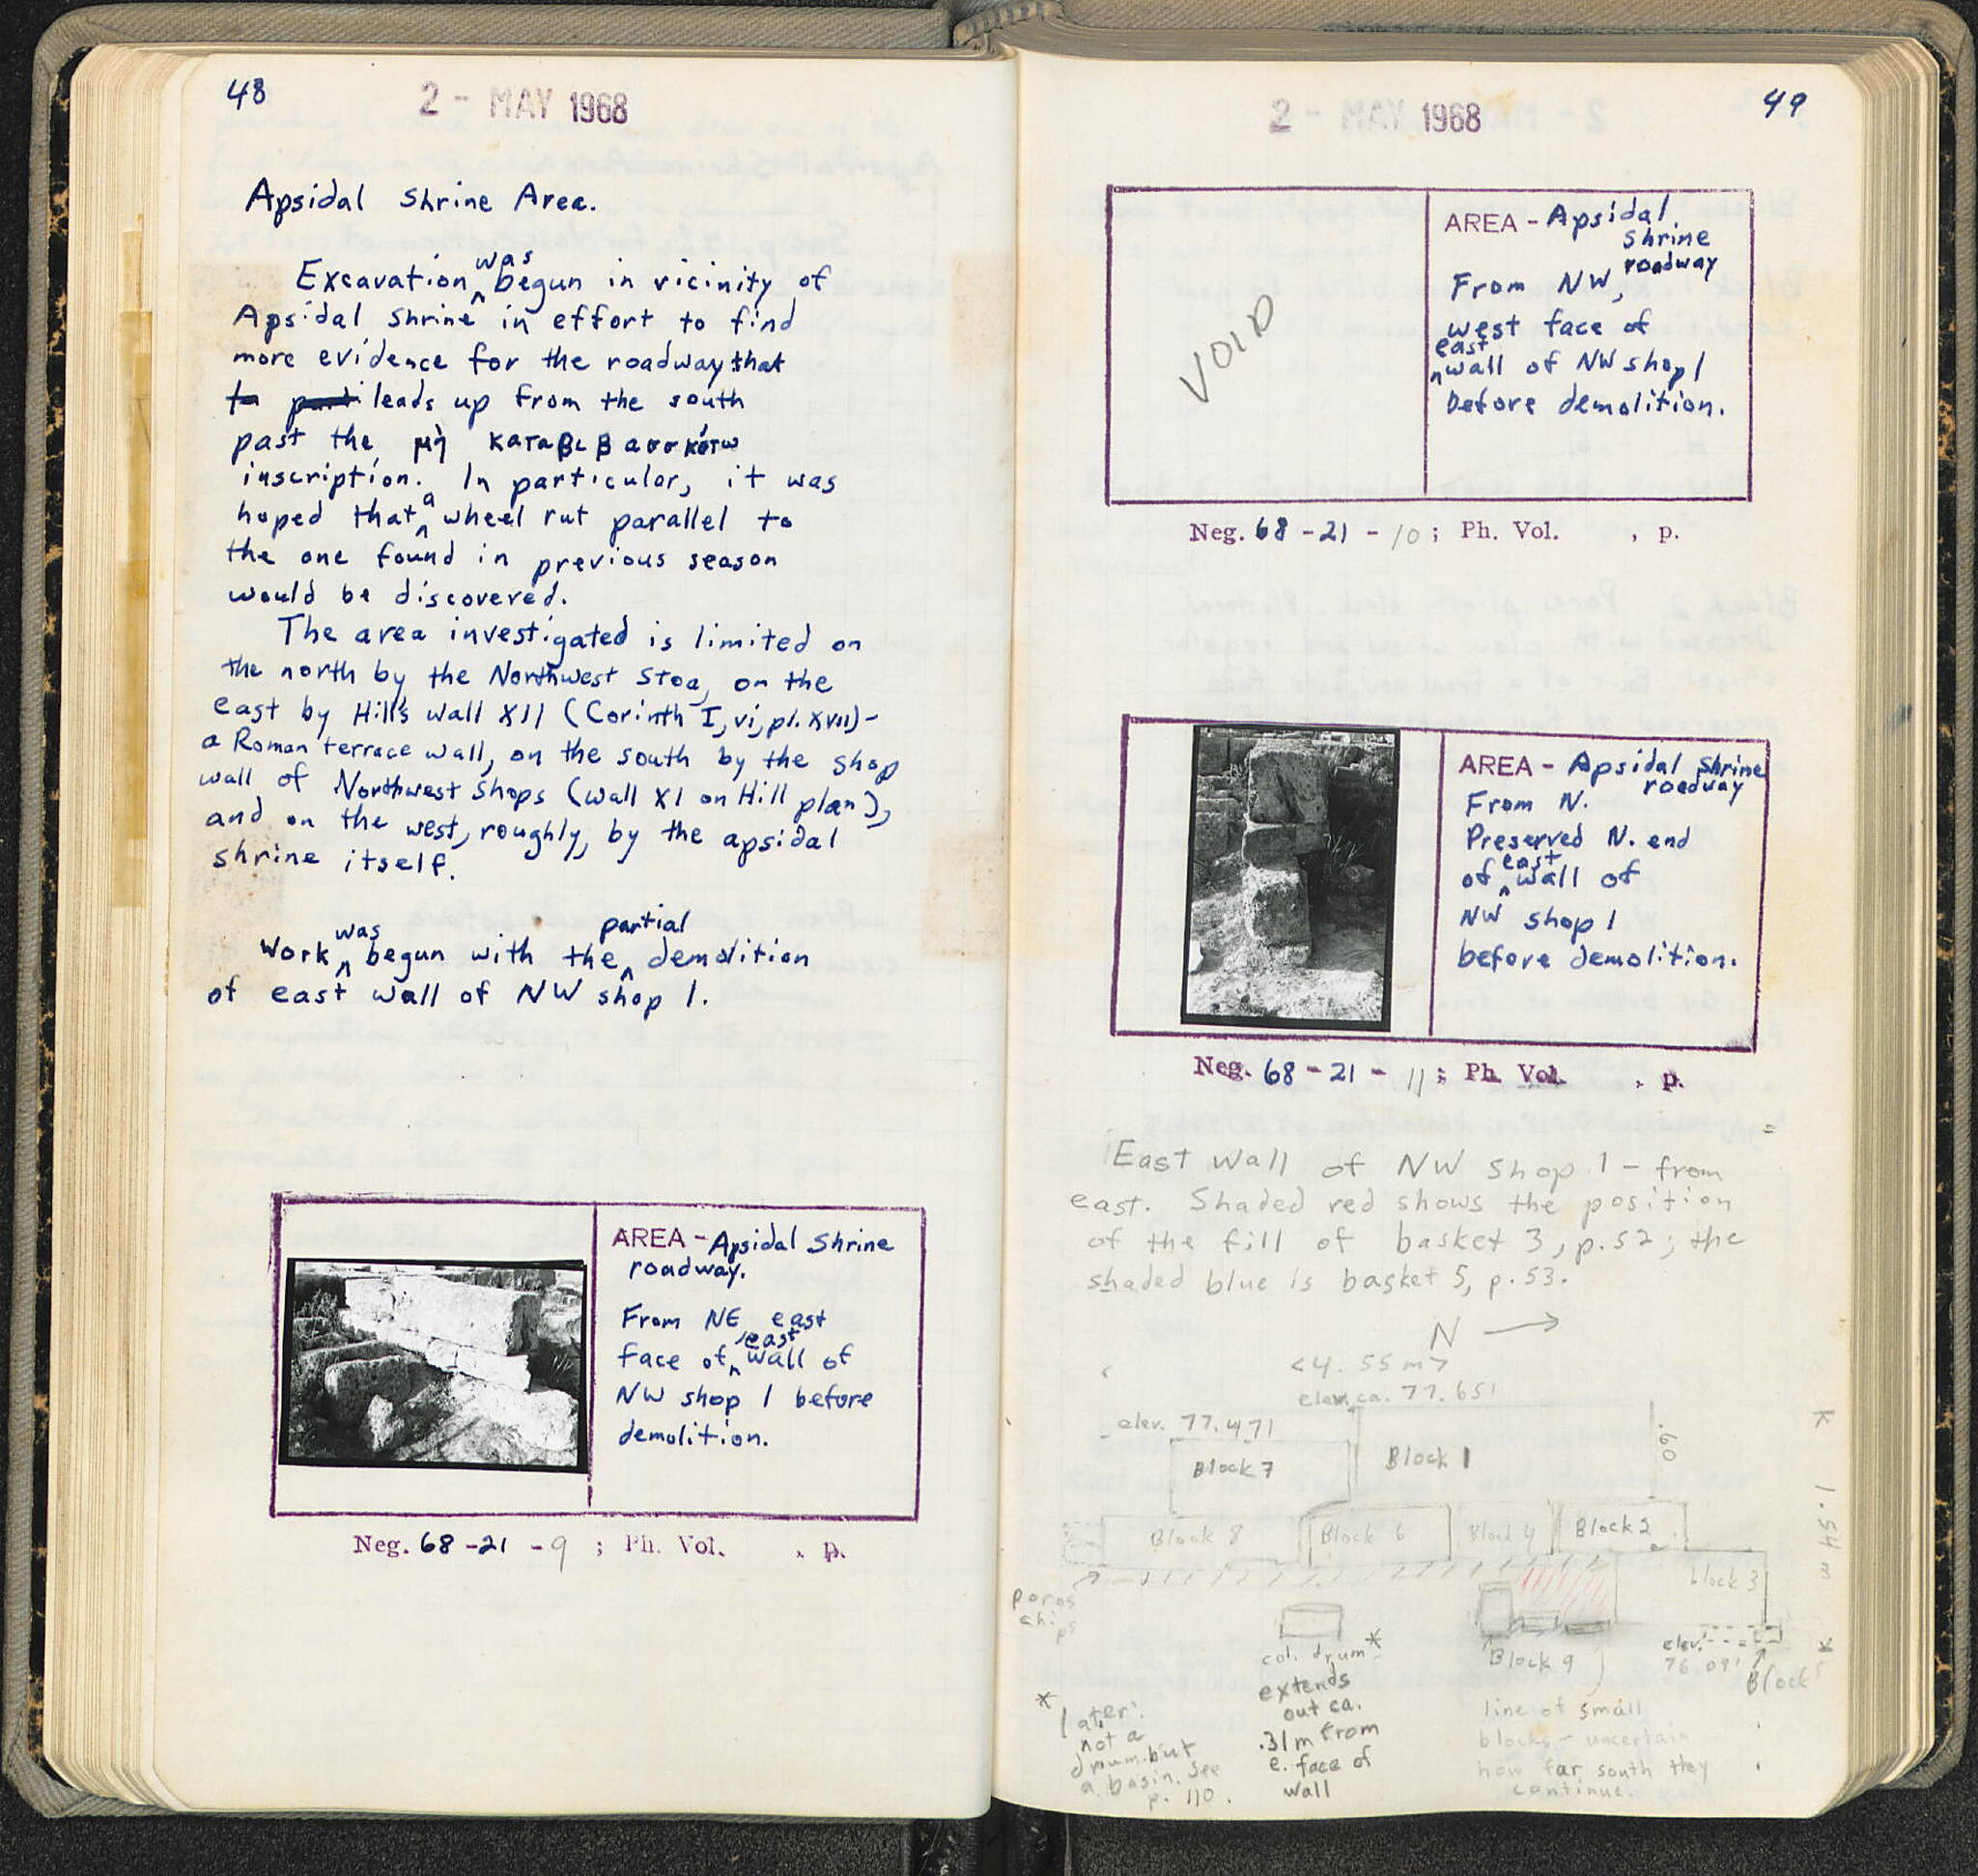 48
2 - MAY 1968
Apsidal Shrine Area.
Excavation was begun in vicinity of
Apsidal Shrine in effort to find
more evidence for the roadway that
leads up from the south
past the μὴ καταβιβασσκέτω
inscription. In particular, it was
hoped that a wheel rut parallel to
the one found in previous season
would be discovered.
The area investigated is limited on
the north by the Northwest Stoa, on the
east by Hill's wall XII (Corinth I, vi, pl. XVII) -
a Roman terrace wall, on the south by the shop
wall of Northwest Shops (wall XI on Hill plan),
and on the west, roughly, by the apsidal
shrine itself.
Work was begun with the partial demolition
of east wall of NW shop 1.
AREA - Apsidal Shrine
roadway.
From NE east
face of east wall of
NW shop 1 before
demolition.
Neg. 68 - 21 - 9 ; Ph. Vol. , p.
49
2 - MAY 1968
VOID
AREA - Apsidal
shrine
roadway
From NW,
west face of
east wall of NW shop 1
before demolition.
Neg. 68 - 21 - 10 ; Ph. Vol. , p.
AREA - Apsidal Shrine
roadway
From N.
Preserved N. end
of east wall of
NW shop 1
before demolition.
Neg. 68 - 21 - 11 ; Ph. Vol. , p.
East Wall of NW shop 1 - from
east. Shaded red shows the position
of the fill of basket 3, p. 52; the
shaded blue is basket 5, p. 53.
N
<4.55 m>
elev. ca. 77.651
elev. 77.471
Block 7
Block 1
.60
Block 8
Block 6
Block 4
Block 2
block 3
1.54 m
poros
chips
col. drum *
extends
out ca.
.31m from
e. face of
wall
Block 9
elev.
76.091
Block 5
line of small
blocks - uncertain
how far south they
continue.
* later:
not a
drum but
a basin. See
p. 110.